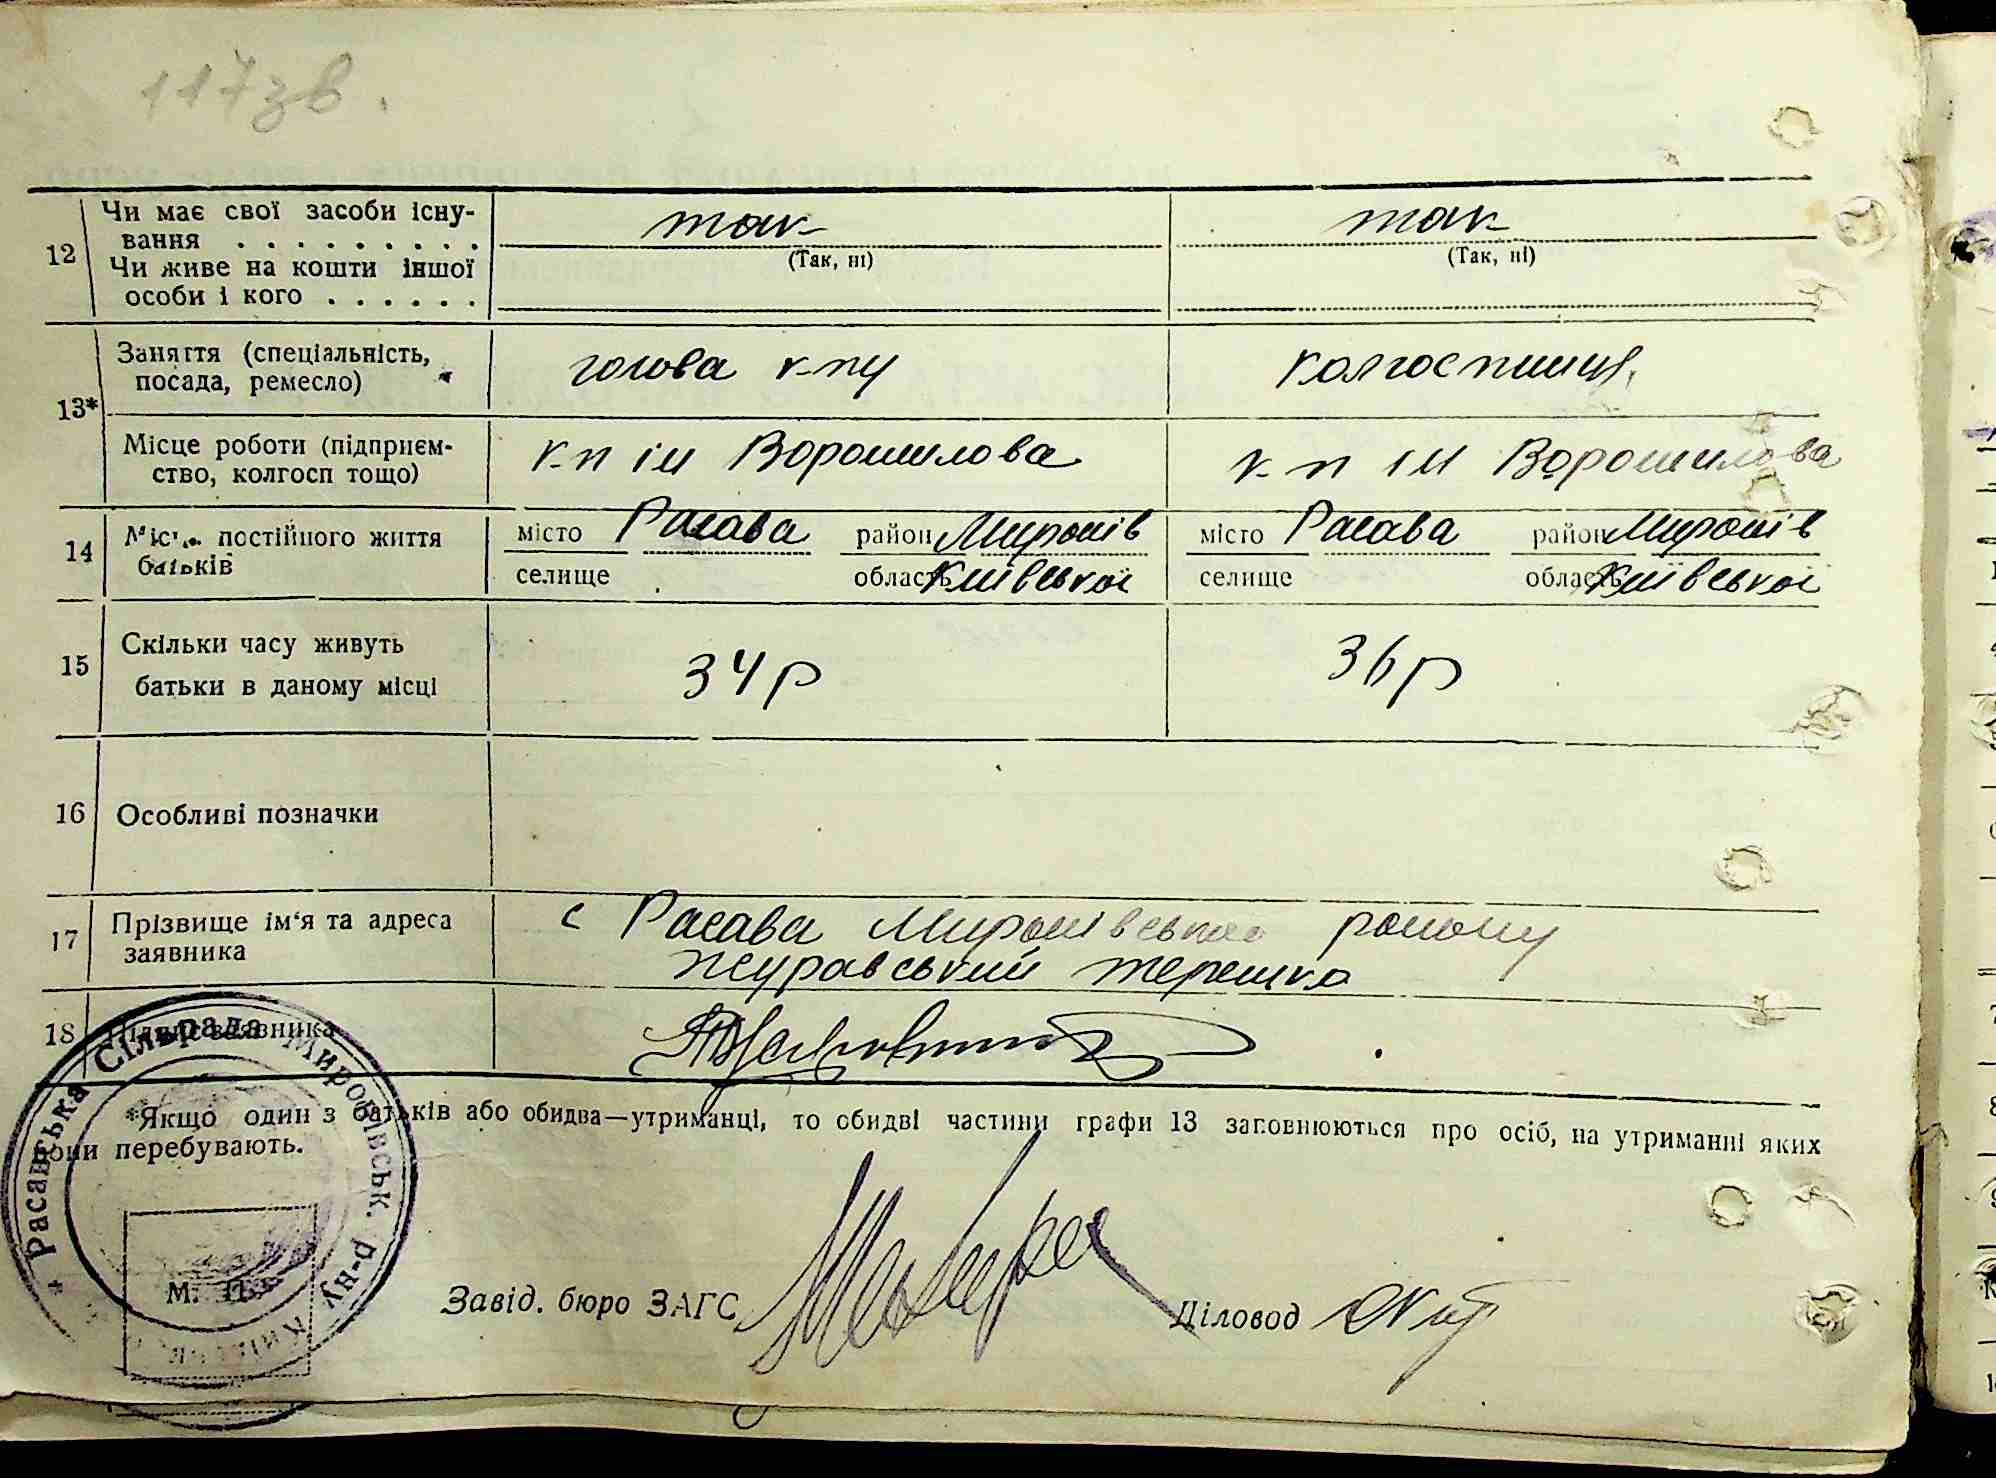 117зв.
12 Чи має свої засоби існу-
вання . . . . . . . . . так так
(Так, ні) (Так, ні)
Чи живе на кошти іншої
особи і кого . . . . . .
13* Заняття (спеціальність, посада, ремесло) голова к-пу колгоспниця
Місце роботи (підприєм-
ство, колгосп тощо) к-п ім Ворошилова к-п ім Ворошилова
14 Місце постійного життя місто Расава район Миронів місто Расава район Миронів
батьків селище область Київської селище область Київської
15 Скільки часу живуть
батьки в даному місці 34 р 36 р
16 Особливі позначки
17 Прізвище ім'я та адреса с Расава Миронівського району
заявника Журавський Терешко
18 Підпис заявника
*Якщо один з батьків або обидва—утриманці, то обидві частини графи 13 заповнюються про осіб, на утриманні яких
вони перебувають.
Расавська Сільрада Миронівськ. р-ну
М. П.
Завід. бюро ЗАГС Діловод